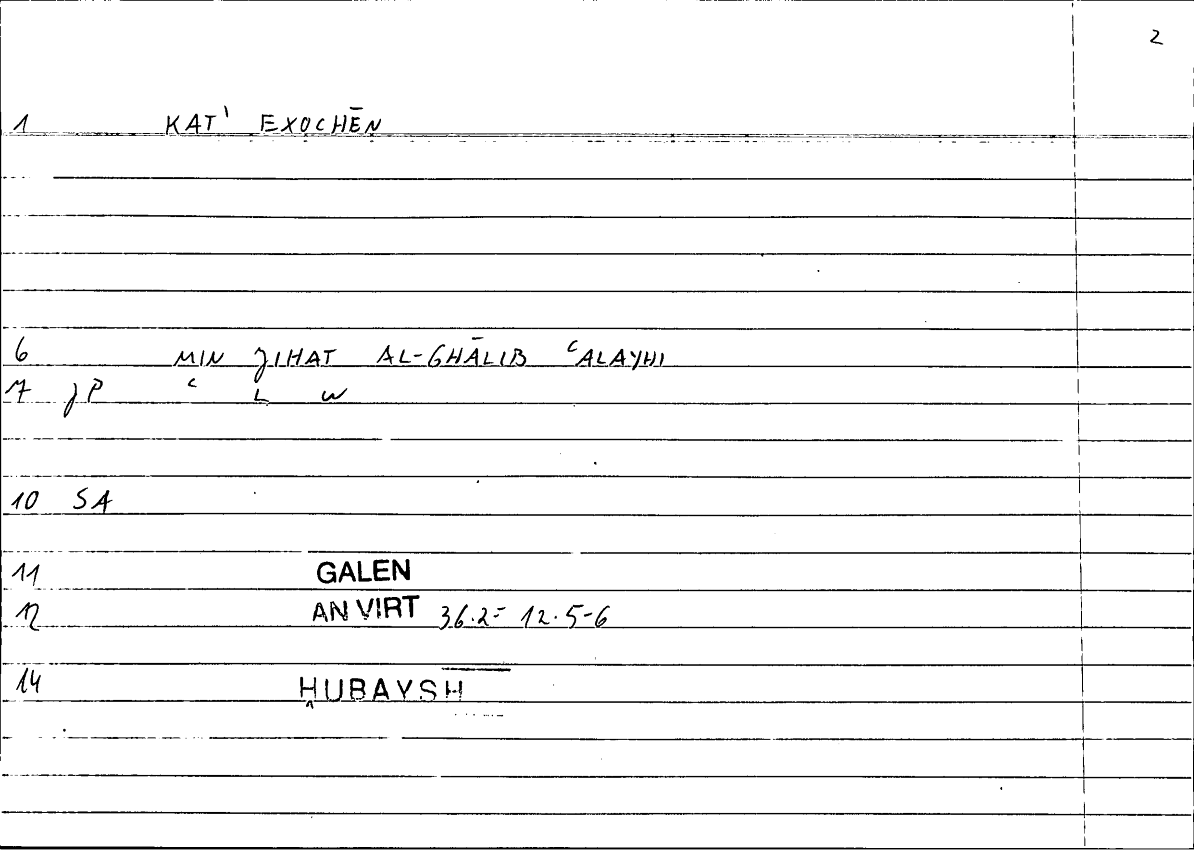 2
1 KAT' EXOCHĒN
6 MIN JIHAT AL-GHĀLIB ʿALAYHI
7 JP ʿ L W
10 SA
11 GALEN
12 AN VIRT 36.2- 12.5-6
14 ḤUBAYSH